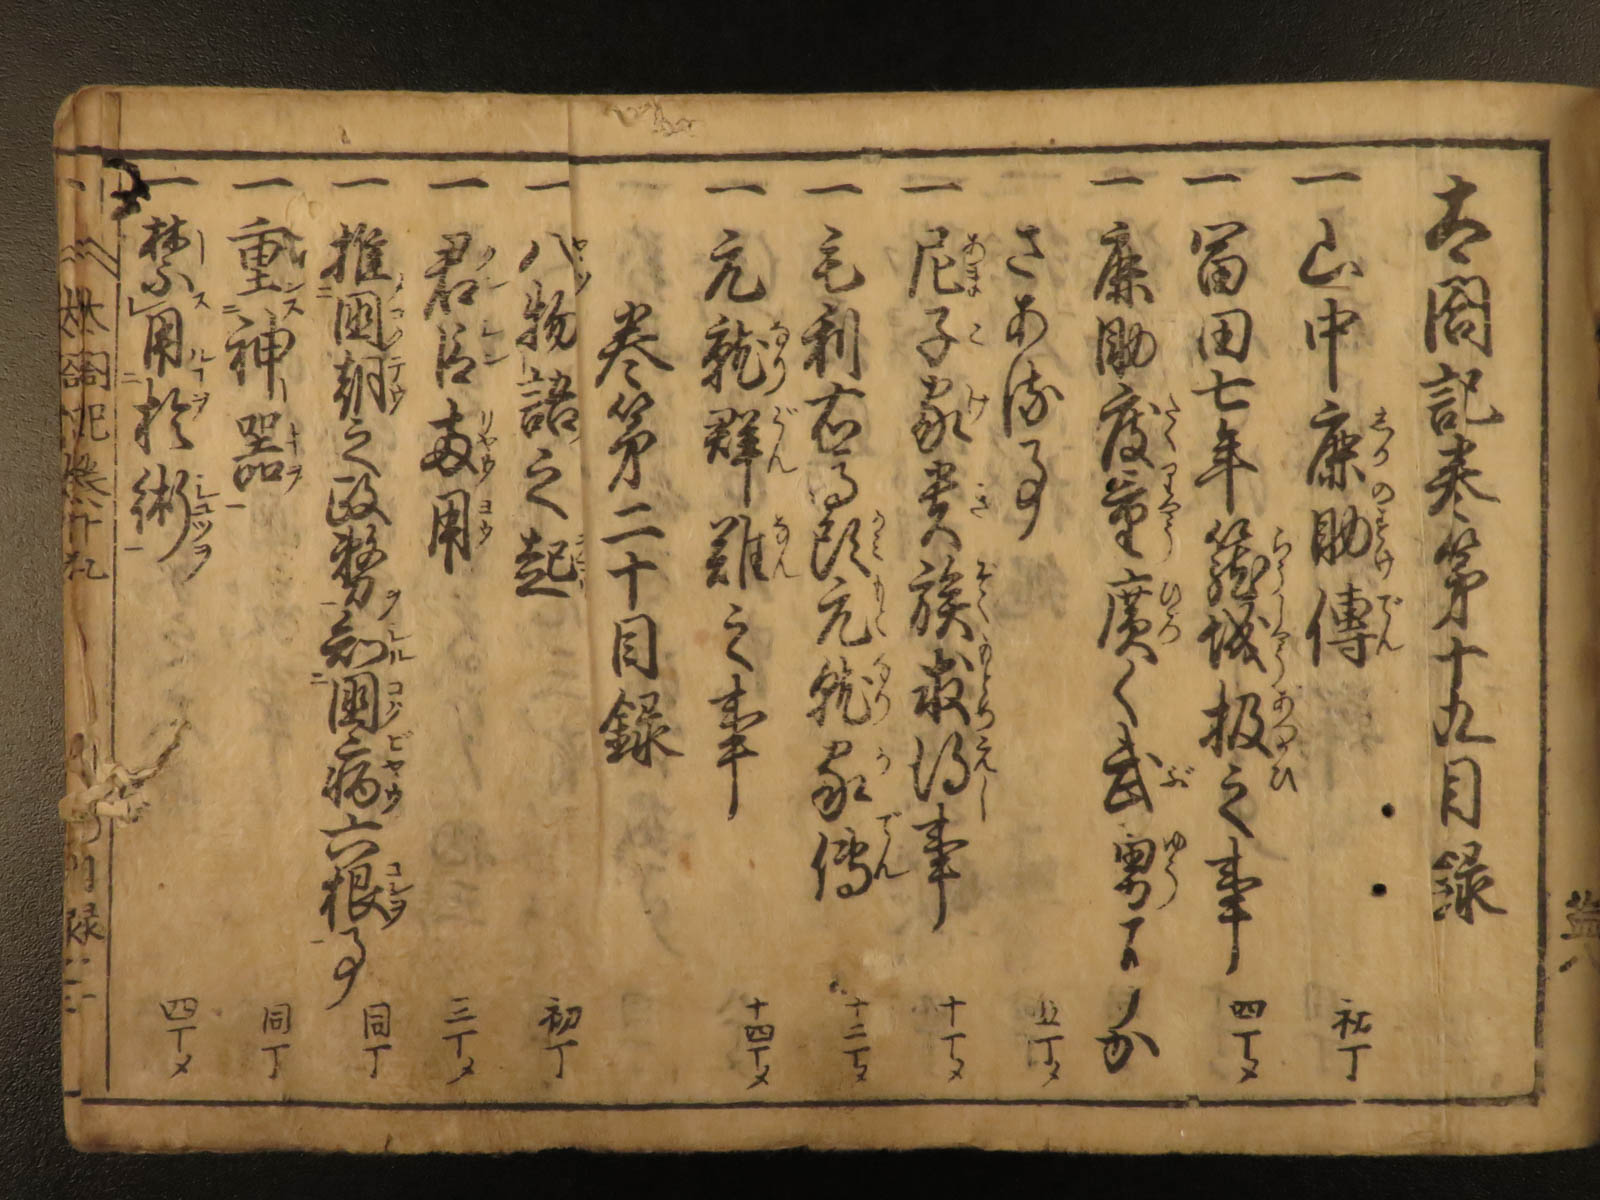 太閤記巻第十九目録
一 山中鹿助傳 初丁
一 冨田七年籠城扱之事 四丁メ
一 鹿助度量廣く武勇
さある事 五丁メ
一 尼子家貴族求得事 十丁メ
一 毛利右馬頭元就家傳 十二丁メ
一 元就群難之事 十四丁メ
巻第二十目録
一 八物語之起 初丁
一 君臣両用 三丁メ
一 推国朝之政勢知国病六根事 同丁
一 重神器 同丁
一 禁用於術 四丁メ
太閤記